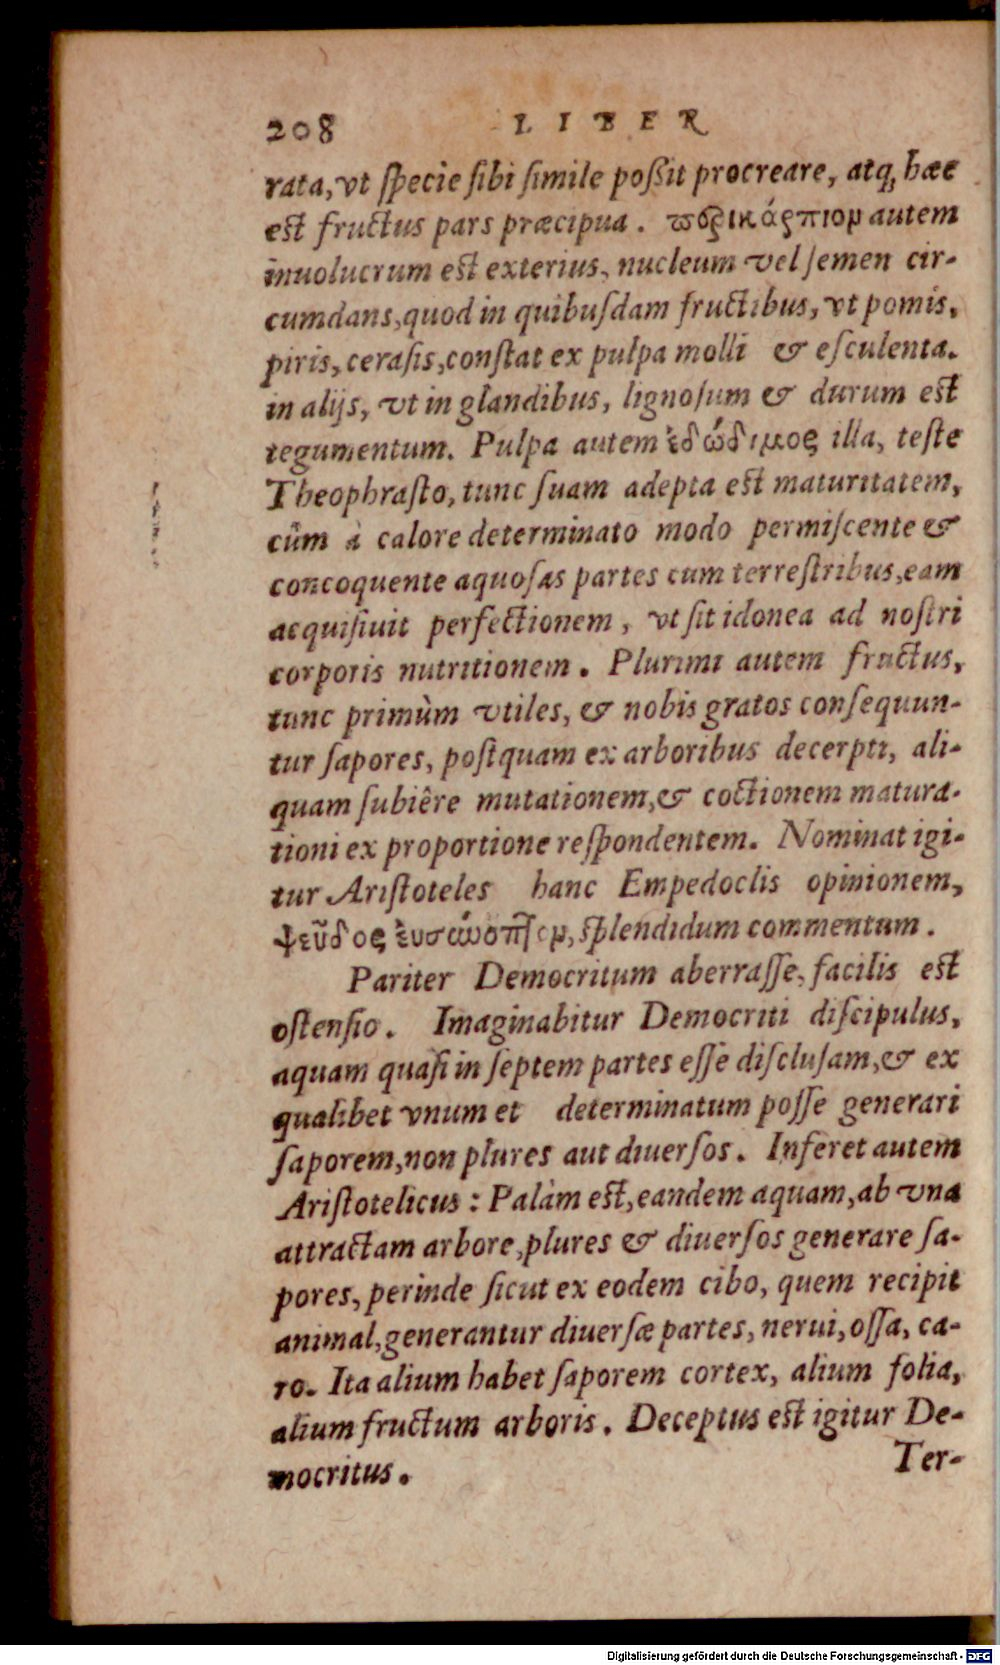 208 LIBER
rata, vt specie sibi simile poßit procreare, atq; hæc
est fructus pars præcipua. περικάρπιον autem
inuolucrum est exterius, nucleum vel semen cir-
cumdans, quod in quibusdam fructibus, vt pomis,
piris, cerasis, constat ex pulpa molli & esculenta.
in alijs, vt in glandibus, lignosum & durum est
tegumentum. Pulpa autem ἐδώδιμος illa, teste
Theophrasto, tunc suam adepta est maturitatem,
cùm à calore determinato modo permiscente &
concoquente aquosas partes cum terrestribus, eam
acquisiuit perfectionem, vt sit idonea ad nostri
corporis nutritionem. Plurimi autem fructus,
tunc primùm vtiles, & nobis gratos consequun-
tur sapores, postquam ex arboribus decerpti, ali-
quam subiêre mutationem, & coctionem matura-
tioni ex proportione respondentem. Nominat igi-
tur Aristoteles hanc Empedoclis opinionem,
ψεῦδος εὐσύνοπτον, splendidum commentum.
Pariter Democritum aberrasse, facilis est
ostensio. Imaginabitur Democriti discipulus,
aquam quasi in septem partes esse disclusam, & ex
qualibet vnum et determinatum posse generari
saporem, non plures aut diuersos. Inferet autem
Aristotelicus: Palàm est, eandem aquam, ab vna
attractam arbore, plures & diuersos generare sa-
pores, perinde sicut ex eodem cibo, quem recipit
animal, generantur diuersæ partes, nerui, ossa, ca-
ro. Ita alium habet saporem cortex, alium folia,
alium fructum arboris. Deceptus est igitur De-
mocritus.
Ter-
Digitalisierung gefördert durch die Deutsche Forschungsgemeinschaft - DFG